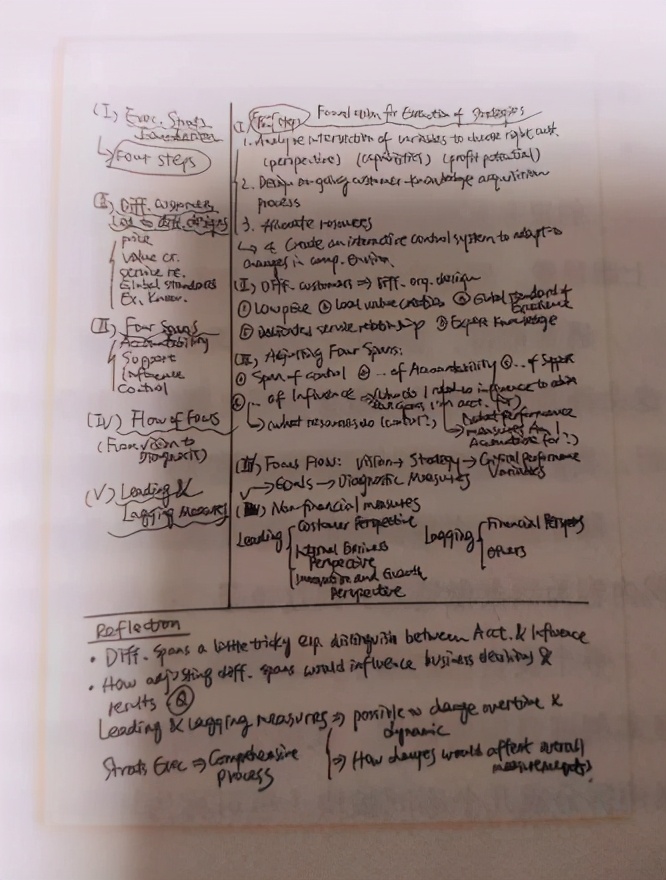 (I) Exec. Strats
↳ Four steps
(II) Diff. customers
Lead to diff. designs
price
Value cr.
service re.
Global standards
Ex. Know.
(III) Four Spans
Accountability
Support
Influence
Control
(IV) Flow of Focus
(From vision to
Diagnosis)
(V) Leading &
Lagging Measures
(I) Four steps Foundation for Execution of Strategies
1. Analyze intersection of variables to choose right cust.
(perspective) (capabilities) (profit potential)
2. Design on-going customer-knowledge acquisition
process
3. Allocate resources
↳ 4. Create an interactive control system to adapt to
changes in comp. Environ.
(II) Diff. customers ⇒ Diff. org. design
① Low price ② Local value creation ③ Global standard of
Excellence
④ Dedicated service relationship ⑤ Expert Knowledge
(III) Adjusting Four Spans:
① Span of control ② ... of Accountability ③ ... of Support
④ ... of Influence ⇒ (Who do I need to influence to
goals I'm acct. for)
↳ (what resources do I control?) ↳ (What performance
measures Am I
Accountable for?)
(IV) Focus Flow: vision → Strategy → Critical Performance
Variables
→ Goals → Diagnostic Measures
Non-financial measures
Leading { Customer Perspective
Internal Business
Perspective
Innovation and Growth
Perspective
Lagging { Financial Perspec
Others
Reflection
• Diff. spans a little tricky esp. distinguish between Acct. & Influence
• How adjusting diff. spans would influence business decisions &
results Q
Leading & Lagging measures ⇒ possible to change overtime &
dynamic
Strats Exec ⇒ Comprehensive
process
⇒ How changes would affect overall
measurements?